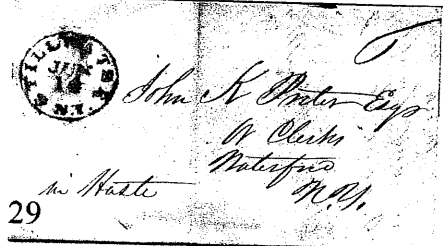 STILLWATER N.Y.
JUN
14
John K Porter Esqr
at Clerks
Waterford
N.Y.
in Haste
29